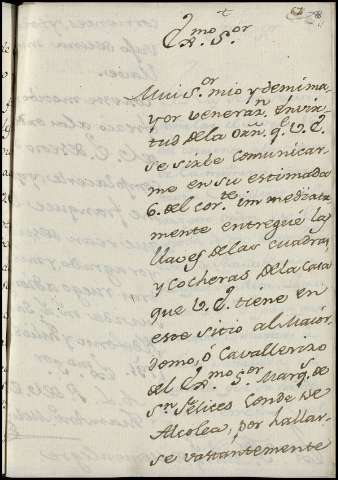 Exmo. Sor.
Mui Sor. mio y de mi ma-
yor venerazn. En vir-
tud de la orñ. qe V. E.
se sirbe comunicar-
me en su estimada
6. del corte. immediata-
mente entregué las
llaves de las cuadras,
y cocheras de la Casa
que V. E. tiene en
este sitio al Maior-
domo, ó Cavallerizo
del Exmo. Sor. Marqs. de
Sn. Felices Conde de
Alcolea, por hallar-
se vastantemente